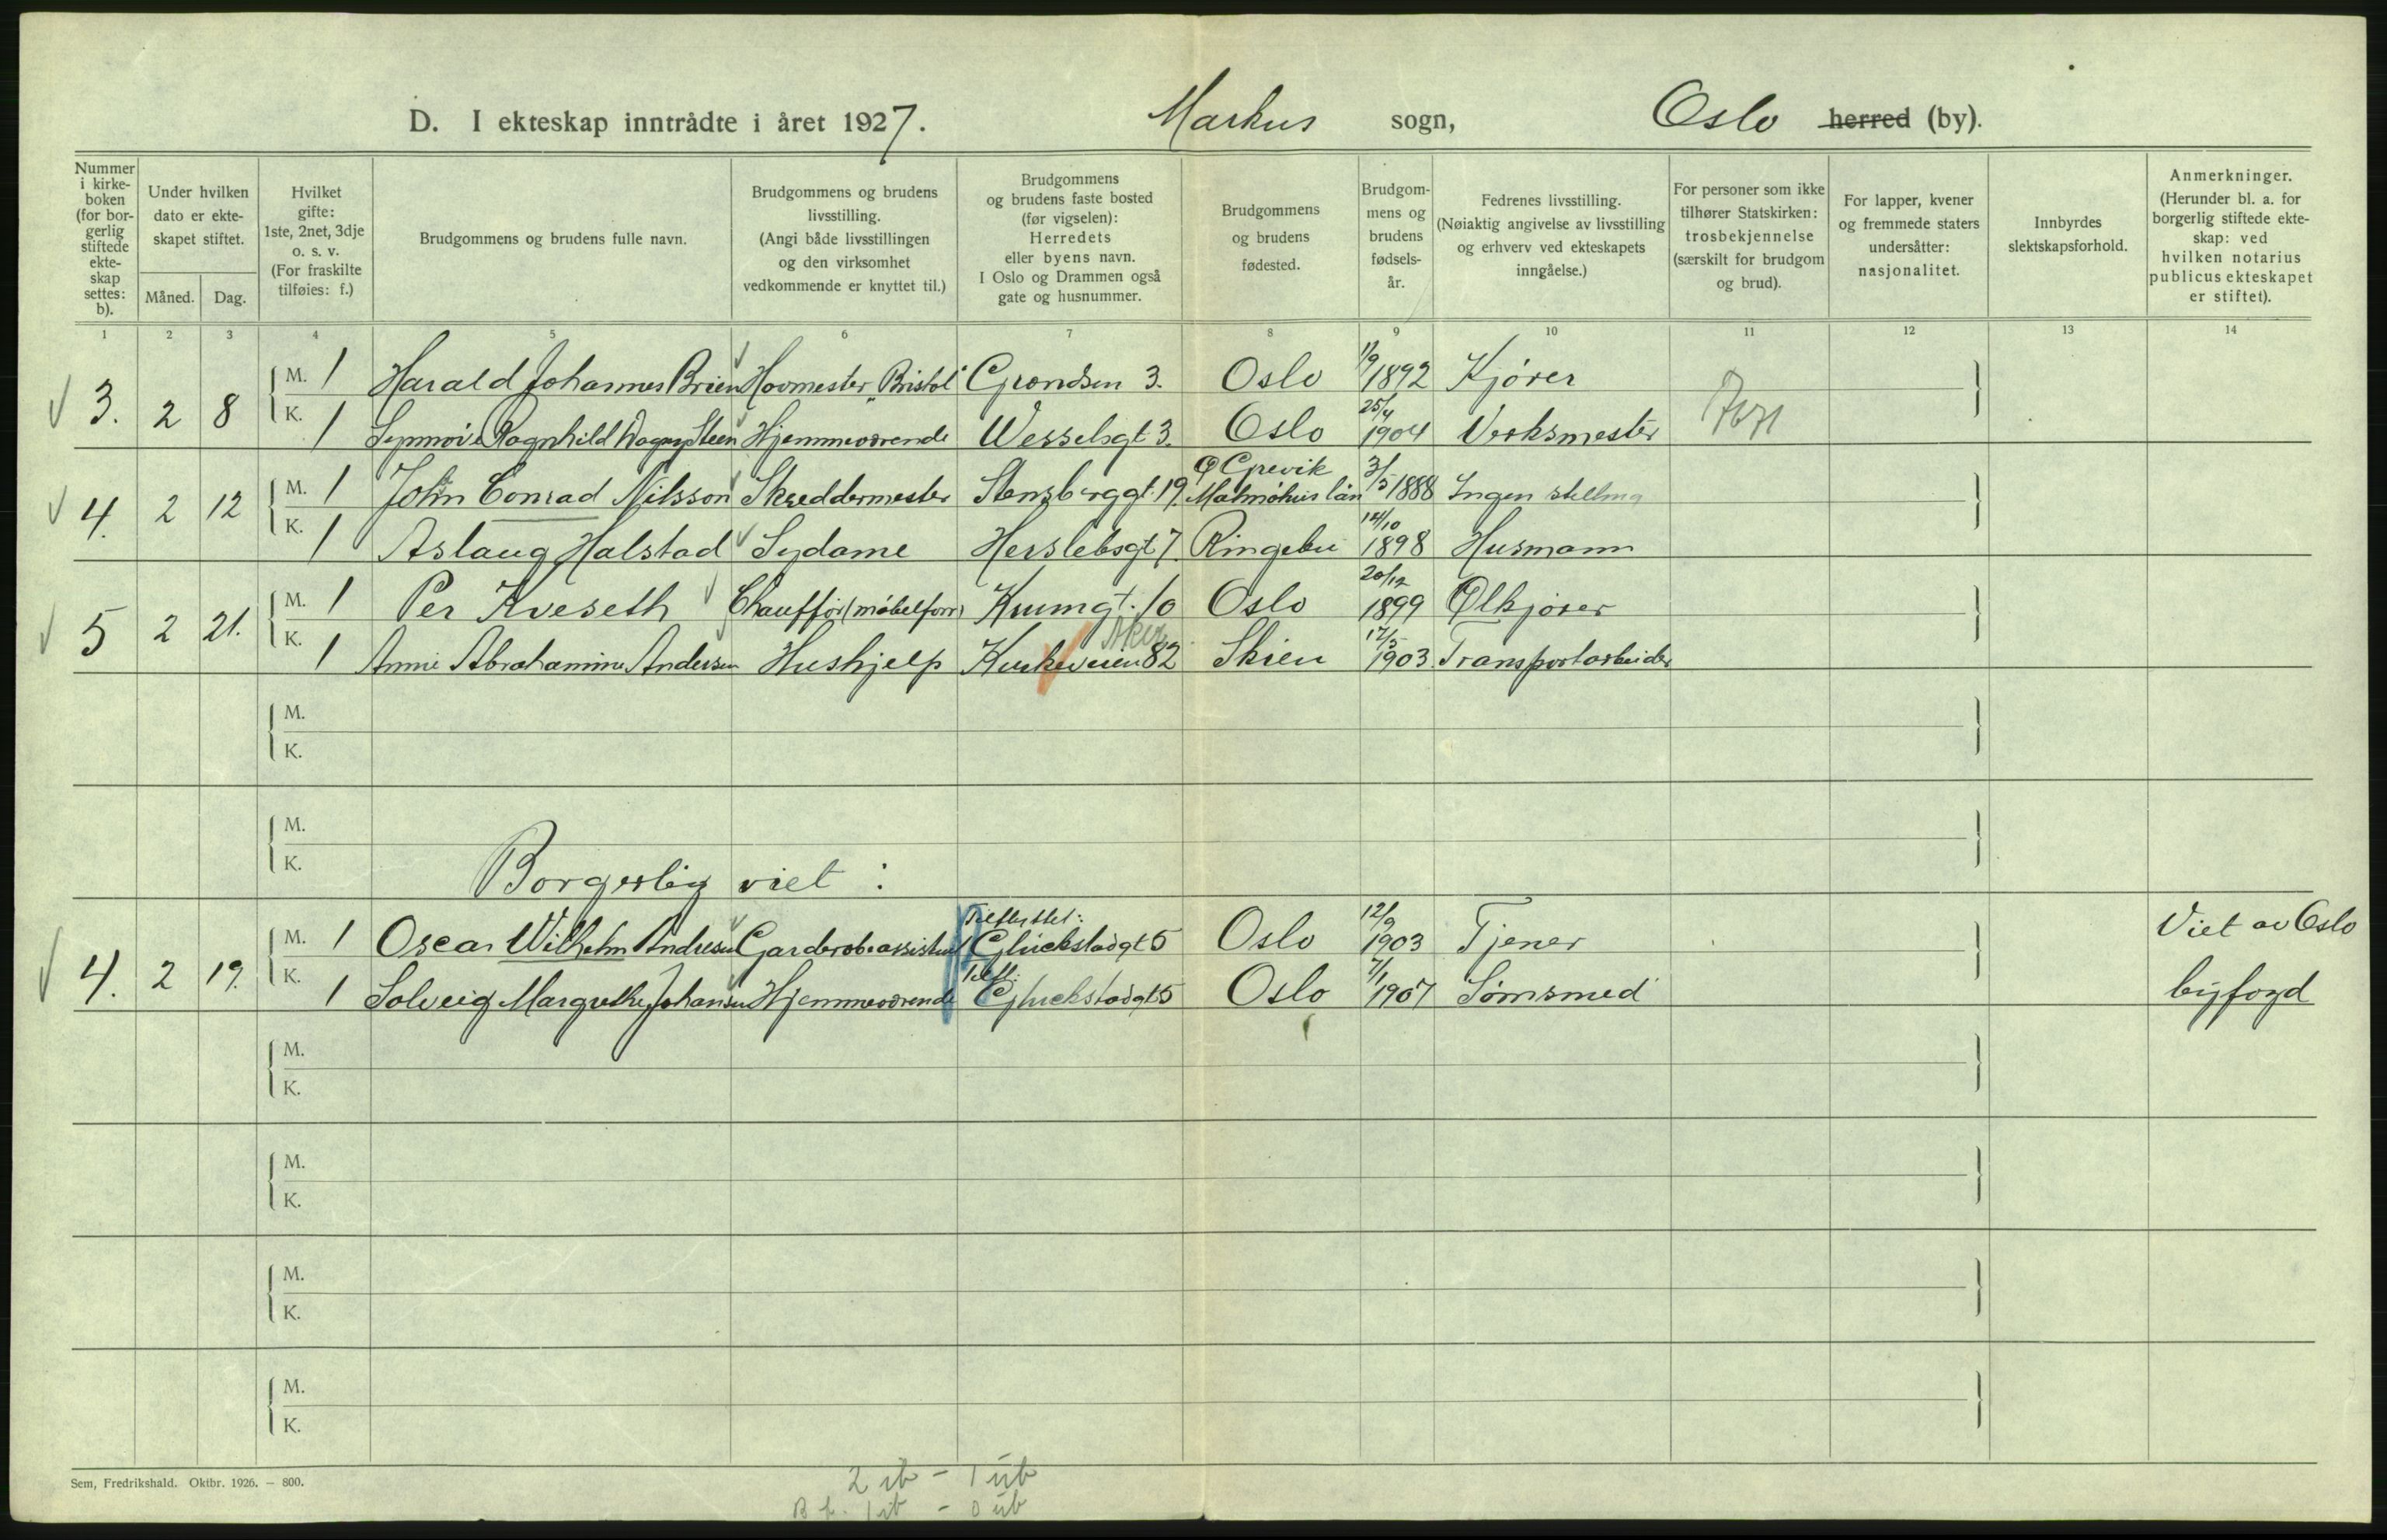 D. I ekteskap inntrådte i året 1927. Markus sogn, Oslo herred (by).
Nummer i kirke-boken (for bor-gerlig stiftede ekte-skap settes: b).
Under hvilken dato er ekte-skapet stiftet.
Måned. Dag.
Hvilket gifte: 1ste, 2net, 3dje o. s. v. (For fraskilte tilføies: f.)
Brudgommens og brudens fulle navn.
Brudgommens og brudens livsstilling. (Angi både livsstillingen og den virksomhet vedkommende er knyttet til.)
Brudgommens og brudens faste bosted (før vigselen): Herredets eller byens navn. I Oslo og Drammen også gate og husnummer.
Brudgommens og brudens fødested.
Brudgom-mens og brudens fødsels-år.
Fedrenes livsstilling. (Nøiaktig angivelse av livsstilling og erhverv ved ekteskapets inngåelse.)
For personer som ikke tilhører Statskirken: trosbekjennelse (særskilt for brudgom og brud).
For lapper, kvener og fremmede staters undersåtter: nasjonalitet.
Innbyrdes slektskapsforhold.
Anmerkninger. (Herunder bl. a. for borgerlig stiftede ekte-skap: ved hvilken notarius publicus ekteskapet er stiftet).
1 2 3 4 5 6 7 8 9 10 11 12 13 14
3. 2 8 M. 1 Harald Johannes Brien Hovmester "Bristol" Grændsen 3. Oslo 11/9 1892 Kjører
K. 1 Synnøve Ragnhild Dagny Steen Hjemmeværende Wesselsgt 3. Oslo 25/4 1904 Verksmester
4. 2 12 M. 1 John Conrad Nilsson Skreddermester Stensberggt. 19. Grevik Malmöhus län 3/5 1888 Ingen stilling
K. 1 Aslaug Halstad Sydame Herslebsgt 7. Ringebu 14/10 1898 Husmann
5 2 21. M. 1 Per Kveseth Chauffør (møbelforr) Krumgt. 10 Oslo 20/12 1899 Ølkjører
Aker
K. 1 Annie Abrahamine Andersen Hushjelp Kirkeveien 82 Skien 17/5 1903. Transportarbeider
M.
K.
M.
K.
Borgerlig viet :
4. 2 19. M. 1 Oscar Wilhelm Andresen Garderobeassistent Tilflyttet: Glückstadgt 5 Oslo 12/9 1903 Tjener Viet av Oslo
K. 1 Solveig Margrethe Johansen Hjemmeværende Tilfl: Glückstadgt 5 Oslo 7/1 1907 Sømsmed byfogd
M.
K.
M.
K.
M.
K.
M.
K.
Sem, Fredrikshald. Oktbr. 1926. — 800.
2 ib - 1 üb
B f. 1 ib - 0 üb